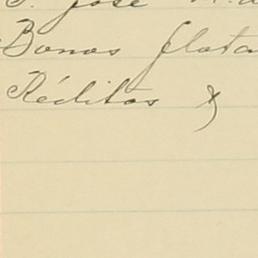 José
Bonos flota
Réditos y